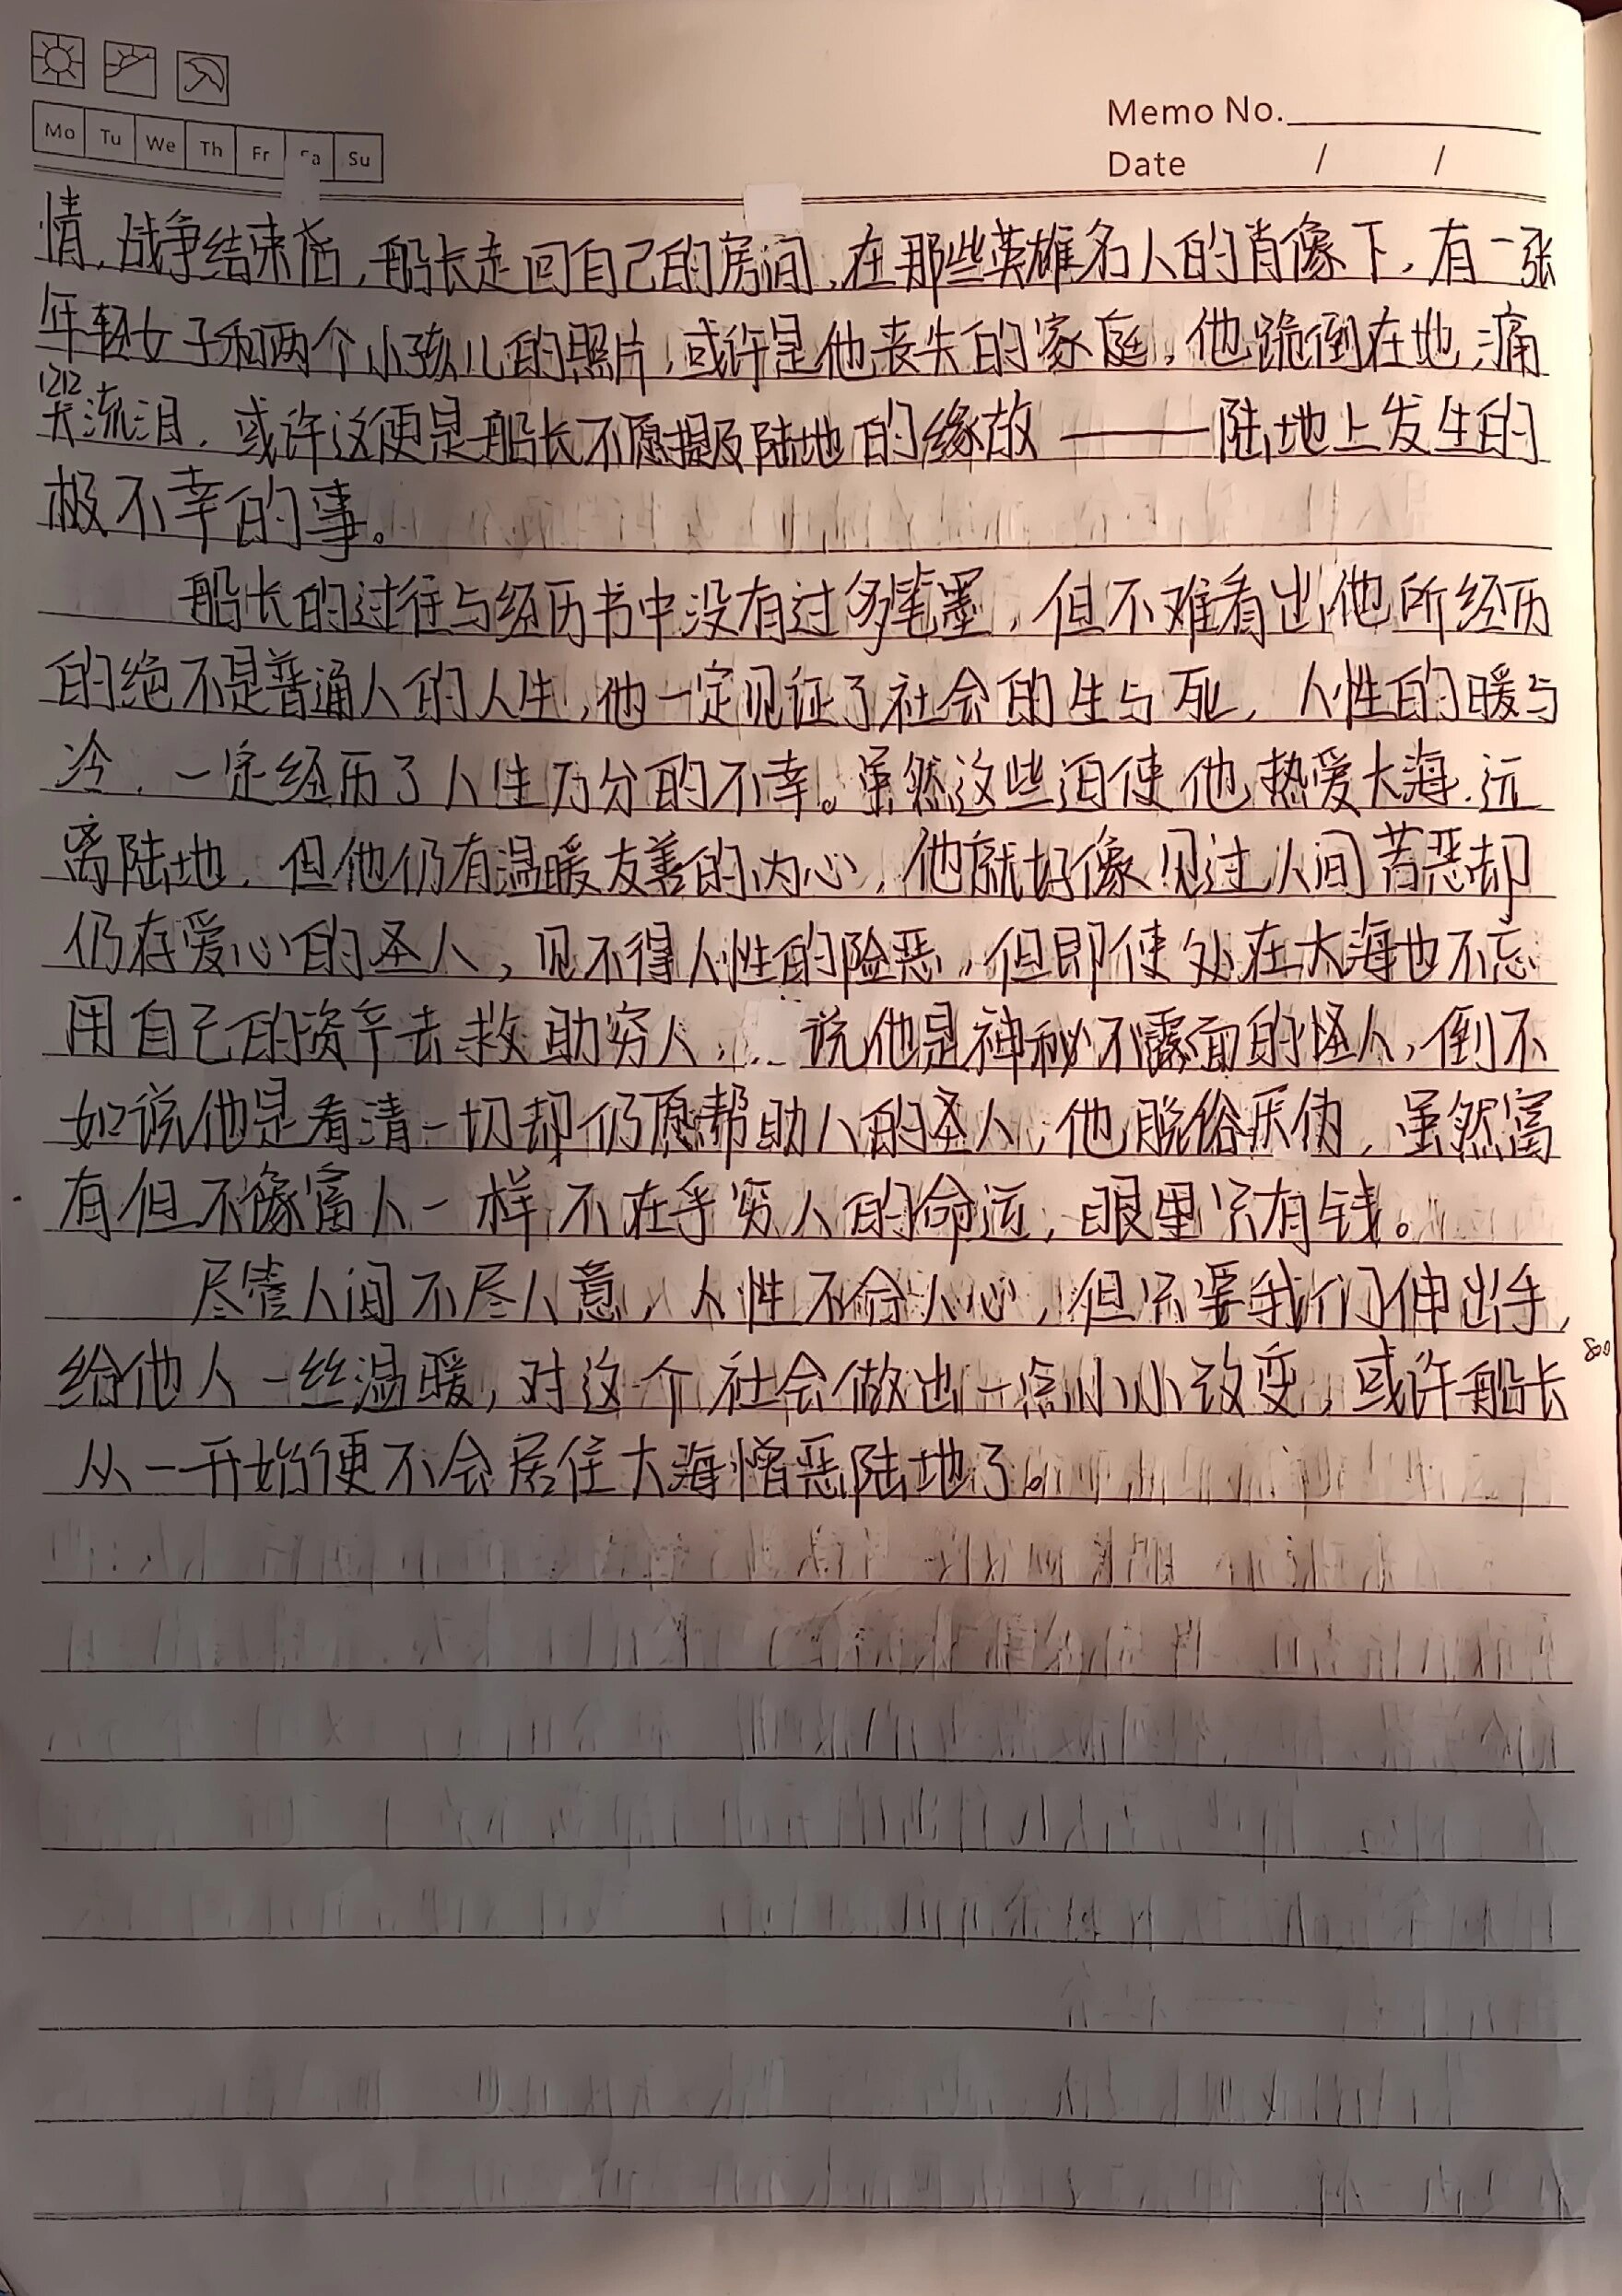 Mo Tu We Th Fr Sa Su
Memo No.
Date / /
情,战争结束后,船长走回自己的房间,在那些英雄名人的肖像下,有一张
年轻女子和两个小孩儿的照片,或许是他丧失的家庭,他跪倒在地,痛
哭流泪,或许这便是船长不愿提及陆地的缘故——陆地上发生的
极不幸的事。
船长的过往与经历书中没有过多笔墨,但不难看出他所经历
的绝不是普通人的人生,他一定见证了社会的生与死,人性的暖与
冷,一定经历了人生万分的不幸。虽然这些迫使他热爱大海,远
离陆地,但他仍有温暖友善的内心,他就好像见过人间苦恶却
仍存爱心的圣人,见不得人性的险恶,但即使处在大海也不忘
用自己的资产去救助穷人,说他是神秘不露面的怪人,倒不
如说他是看清一切却仍愿帮助人的圣人,他脱俗厌伪,虽然富
有但不像富人一样不在乎穷人的命运,眼里只有钱。
尽管人间不尽人意,人性不合人心,但只要我们伸出手,
给他人一丝温暖,对这个社会做出一点小小改变,或许船长
800
从一开始便不会居住大海憎恶陆地了。